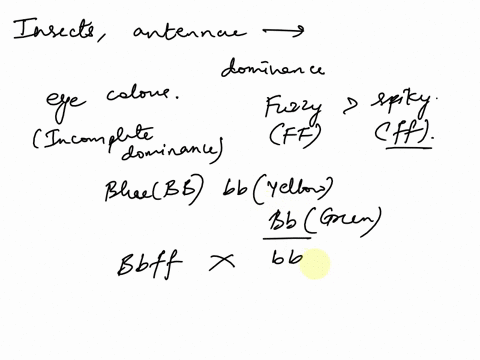 Insects, antennae →
dominance
eye colour.
Fuzzy > spiky.
(Incomplete dominance)
(FF) (ff).
Blue (BB) bb (Yellow)
Bb (Green)
Bbff × bb